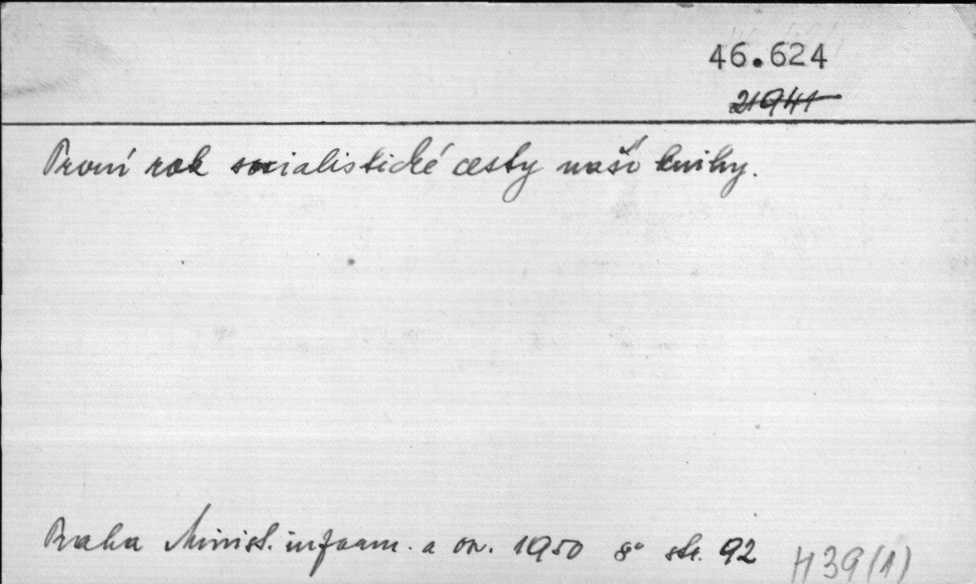 46.624
21941
První rok socialistické cesty naší knihy.
Praha Minist. inform. a osv. 1950 8° str. 92 H39(1)